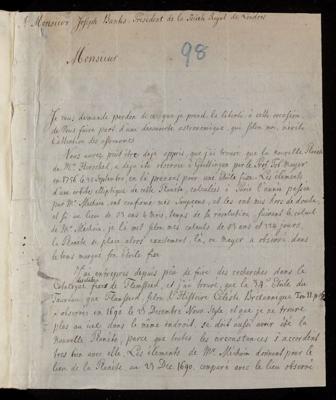 à Monsieur Joseph Banks, Président de la Société Royal de Londres
98
Monsieur
Je vous demande pardon de ce que je prend la liberté à cette occasion
de Vous faire part d'une decouverte astronomique, qui selon moi, merite
l'attention des astronomes
Vous aurez peut être deja appris, que j'ai trouvé, que la nouvelle Planete
de Mr. Herschel a deja eté observée à Göttingen par le Prof. Tob. Mayer
en 1756 le 25 Septembre en la prenant pour une Etoile fixe. Les élements
d'une orbite elliptique de cette Planete, calculées à Paris l'année passée
par Mr. Mechain, ont confirmé mes soupçons, et les ont mis hors de doute,
et si au lieu de 83 ans 4 mois, temps de la revolution, suivant le calcul
de Mr. Mechain, je la met selon mes calculs de 83 ans et 124 jours,
la Planete se place alors exactement là, où Mayer a observé dans
le tems marqué son Etoile fixe
J'ai entrepris depuis peu de faire des recherches dans le
Catalogue de Flamsteed, et j'ai trouvé, que la 34e Etoile du
Taureau que Flamsteed, selon l'Histoire Celeste Britannique Tom II p. 86
a observée en 1690 le 23 Decembre Nouv. Style, et que je ne trouve
plus au ciel dans le même endroit, se doit aussi avoir eté la
nouvelle Planete, parce que toutes les circonstances s'accordent
tres bien avec elle. Les élements de Mr. Méchain donnent pour le
lieu de la Planete, au 23 Dec. 1690, comparé avec le lieu observé